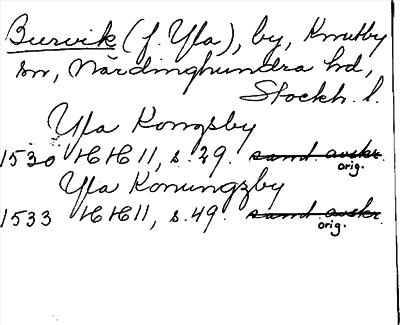 Burvik (f. Yla), by, Knutby
sn, Närdinghundra hd,
Stockh. l.
Yla Kongsby
1530 HH 11, s. 29. samt avskr.
orig.
Yla Konungzby
1533 HH 11, s. 49. samt avskr.
orig.